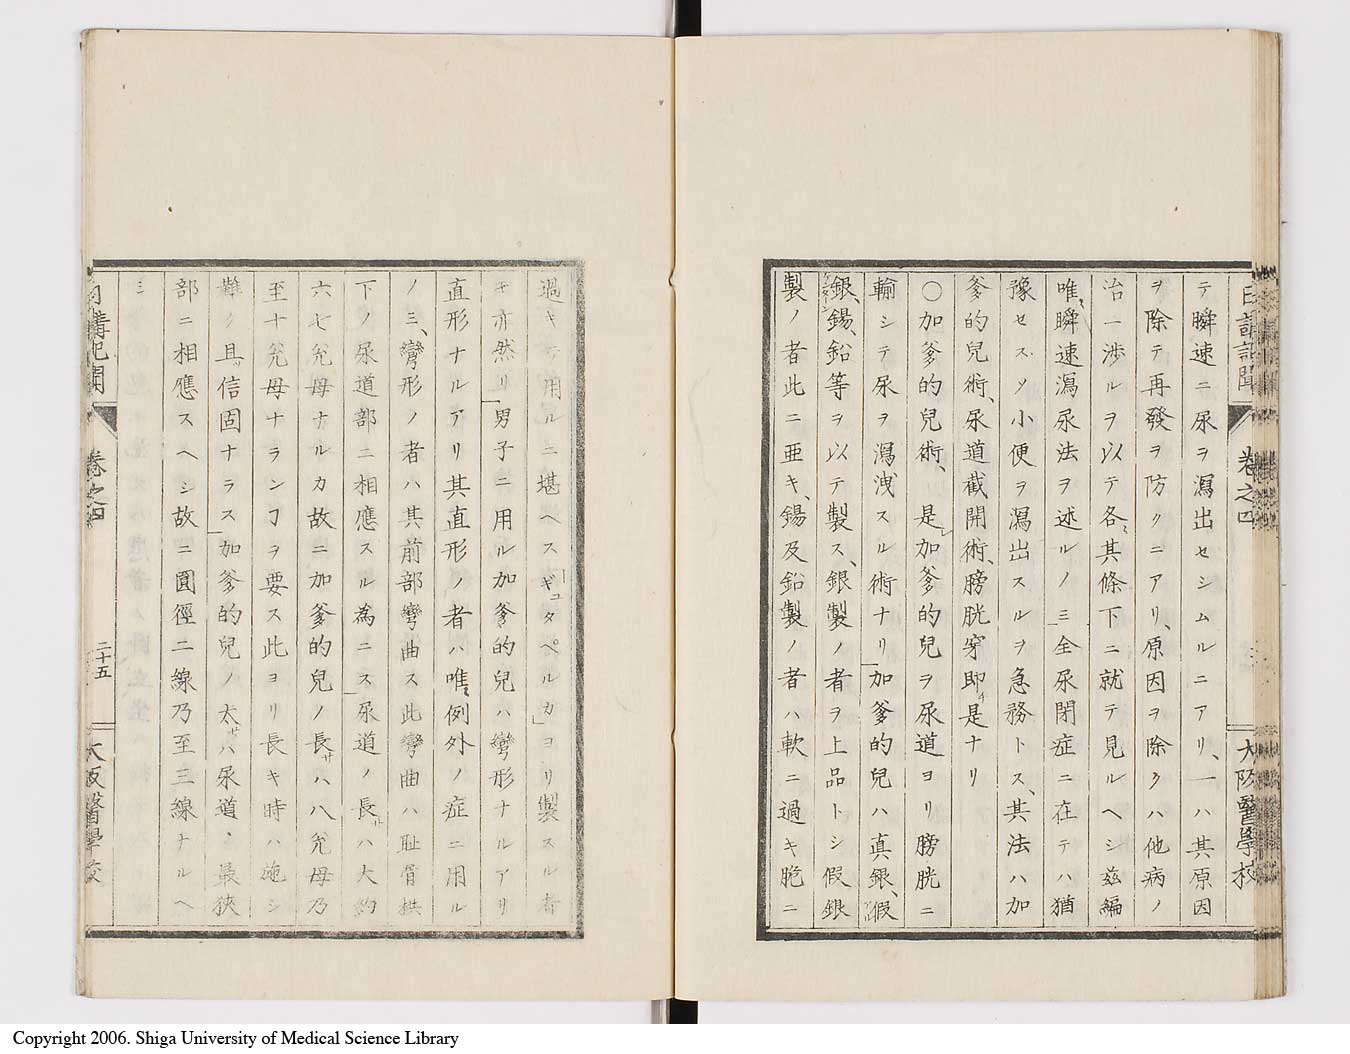 日講記聞 卷之四 大阪醫學校
テ瞬速ニ尿ヲ瀉出セシムルニアリ、一ハ其原因
ヲ除テ再發ヲ防クニアリ、原因ヲ除クハ他病ノ
治一渉ルヲ以テ各其條下ニ就テ見ルヘシ茲編
唯瞬速瀉尿法ヲ述ルノミ全尿閉症ニ在テハ猶
豫セスメ小便ヲ瀉出スルヲ急務トス、其法ハ加
爹的兒術、尿道截開術、膀胱穿即是ナリ
〇加爹的兒術、是加爹的兒ヲ尿道ヨリ膀胱ニ
輸シテ尿ヲ瀉洩スル術ナリ加爹的兒ハ真銀、假
銀、錫、鉛等ヲ以テ製ス、銀製ノ者ヲ上品トシ假銀
製ノ者此ニ亜キ、錫及鉛製ノ者ハ軟ニ過キ脆ニ
過キテ用ルニ堪ヘス「ギュタペルカ」ヨリ製スル者
モ亦然リ男子ニ用ル加爹的兒ハ彎形ナルアリ
直形ナルアリ其直形ノ者ハ唯例外ノ症ニ用ル
ノミ、彎形ノ者ハ其前部彎曲ス此彎曲ハ耻骨拱
下ノ尿道部ニ相應スル為ニス尿道ノ長サハ大約
六七兊母ナルカ故ニ加爹的兒ノ長サハ八兊母乃
至十兊母ナランヿヲ要ス此ヨリ長キ時ハ施シ
難ク且信固ナラス加爹的兒ノ太サハ尿道、最狹
部ニ相應スヘシ故ニ圓徑二線乃至三線ナルヘ
シ
日講記聞 卷之四 二十五 大阪醫學校
Copyright 2006. Shiga University of Medical Science Library